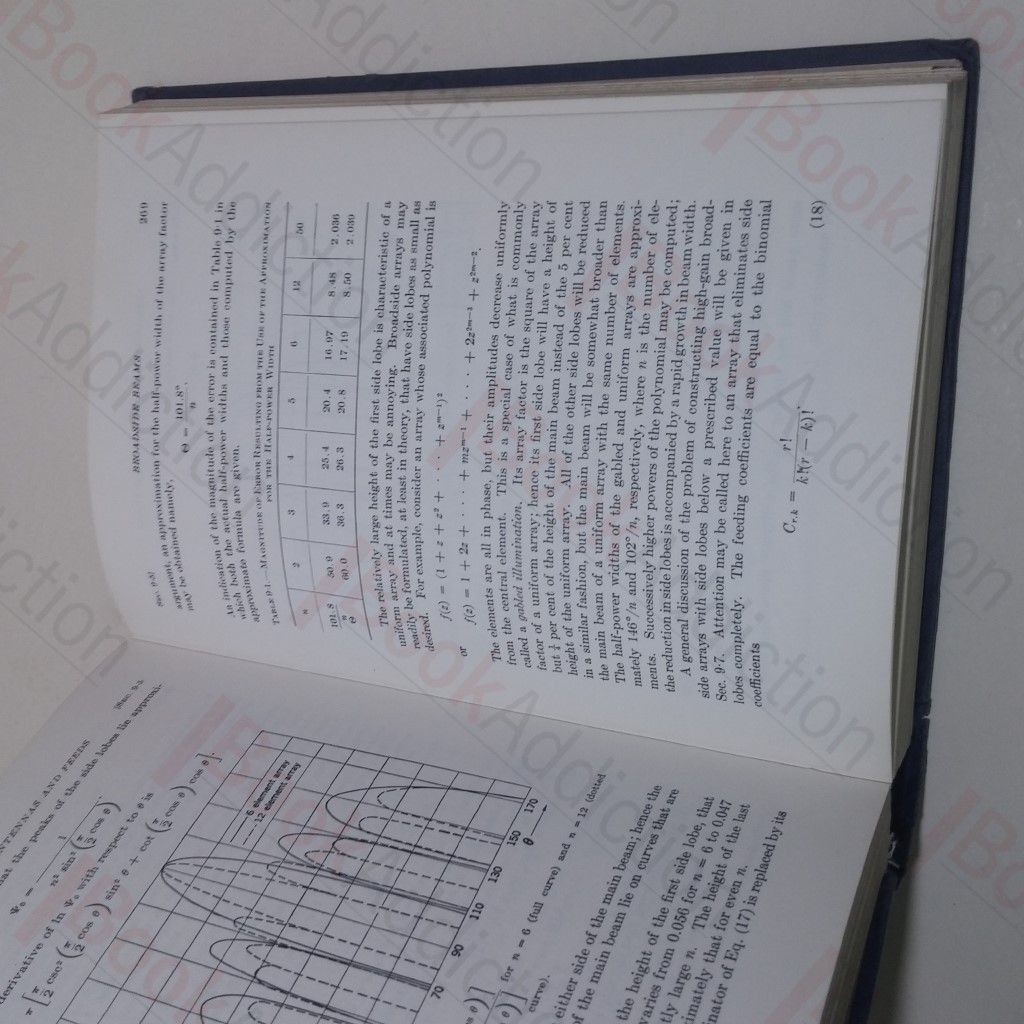 ANTENNAS AND FEEDS [Sec. 9·5
that the peaks of the side lobes lie approxi-
Ψ₀ = 1 / (n² sin² (π/2 cos θ))
derivative of ln Ψ₀ with respect to θ is
π [π/2 csc² (π/2 cos θ) sin² θ + cot (π/2 cos θ) cos θ].
6 element array
12 element array
70 90 110 130 150 170
θ
for n = 6 (full curve) and n = 12 (dotted
curve).
either side of the main beam; hence the
of the main beam lie on curves that are
the height of the first side lobe, that
varies from 0.056 for n = 6 to 0.047
tly large n. The height of the last
imately that for even n.
nator of Eq. (17) is replaced by its
Sec. 9·5] BROADSIDE BEAMS 269
argument, an approximation for the half-power width of the array factor
may be obtained namely,
Θ = 101.8° / n.
An indication of the magnitude of the error is contained in Table 9·1 in
which both the actual half-power widths and those computed by the
approximate formula are given.
TABLE 9·1.—MAGNITUDE OF ERROR RESULTING FROM THE USE OF THE APPROXIMATION
FOR THE HALF-POWER WIDTH
n 2 3 4 5 6 12 50
101.8/n 50.9 33.9 25.4 20.4 16.97 8.48 2.036
Θ 60.0 36.3 26.3 20.8 17.19 8.50 2.039
The relatively large height of the first side lobe is characteristic of a
uniform array and at times may be annoying. Broadside arrays may
readily be formulated, at least in theory, that have side lobes as small as
desired. For example, consider an array whose associated polynomial is
f(z) = (1 + z + z² + · · · + z^{m−1})²
or
f(z) = 1 + 2z + · · · + mz^{m−1} + · · · + 2z^{2m−3} + z^{2m−2}.
The elements are all in phase, but their amplitudes decrease uniformly
from the central element. This is a special case of what is commonly
called a gabled illumination. Its array factor is the square of the array
factor of a uniform array; hence its first side lobe will have a height of
but ¼ per cent of the height of the main beam instead of the 5 per cent
height of the uniform array. All of the other side lobes will be reduced
in a similar fashion, but the main beam will be somewhat broader than
the main beam of a uniform array with the same number of elements.
The half-power widths of the gabled and uniform arrays are approxi-
mately 146°/n and 102°/n, respectively, where n is the number of ele-
ments. Successively higher powers of the polynomial may be computed;
the reduction in side lobes is accompanied by a rapid growth in beam width.
A general discussion of the problem of constructing high-gain broad-
side arrays with side lobes below a prescribed value will be given in
Sec. 9·7. Attention may be called here to an array that eliminates side
lobes completely. The feeding coefficients are equal to the binomial
coefficients
C_{r,k} = r! / k!(r − k)! (18)
BookAddiction